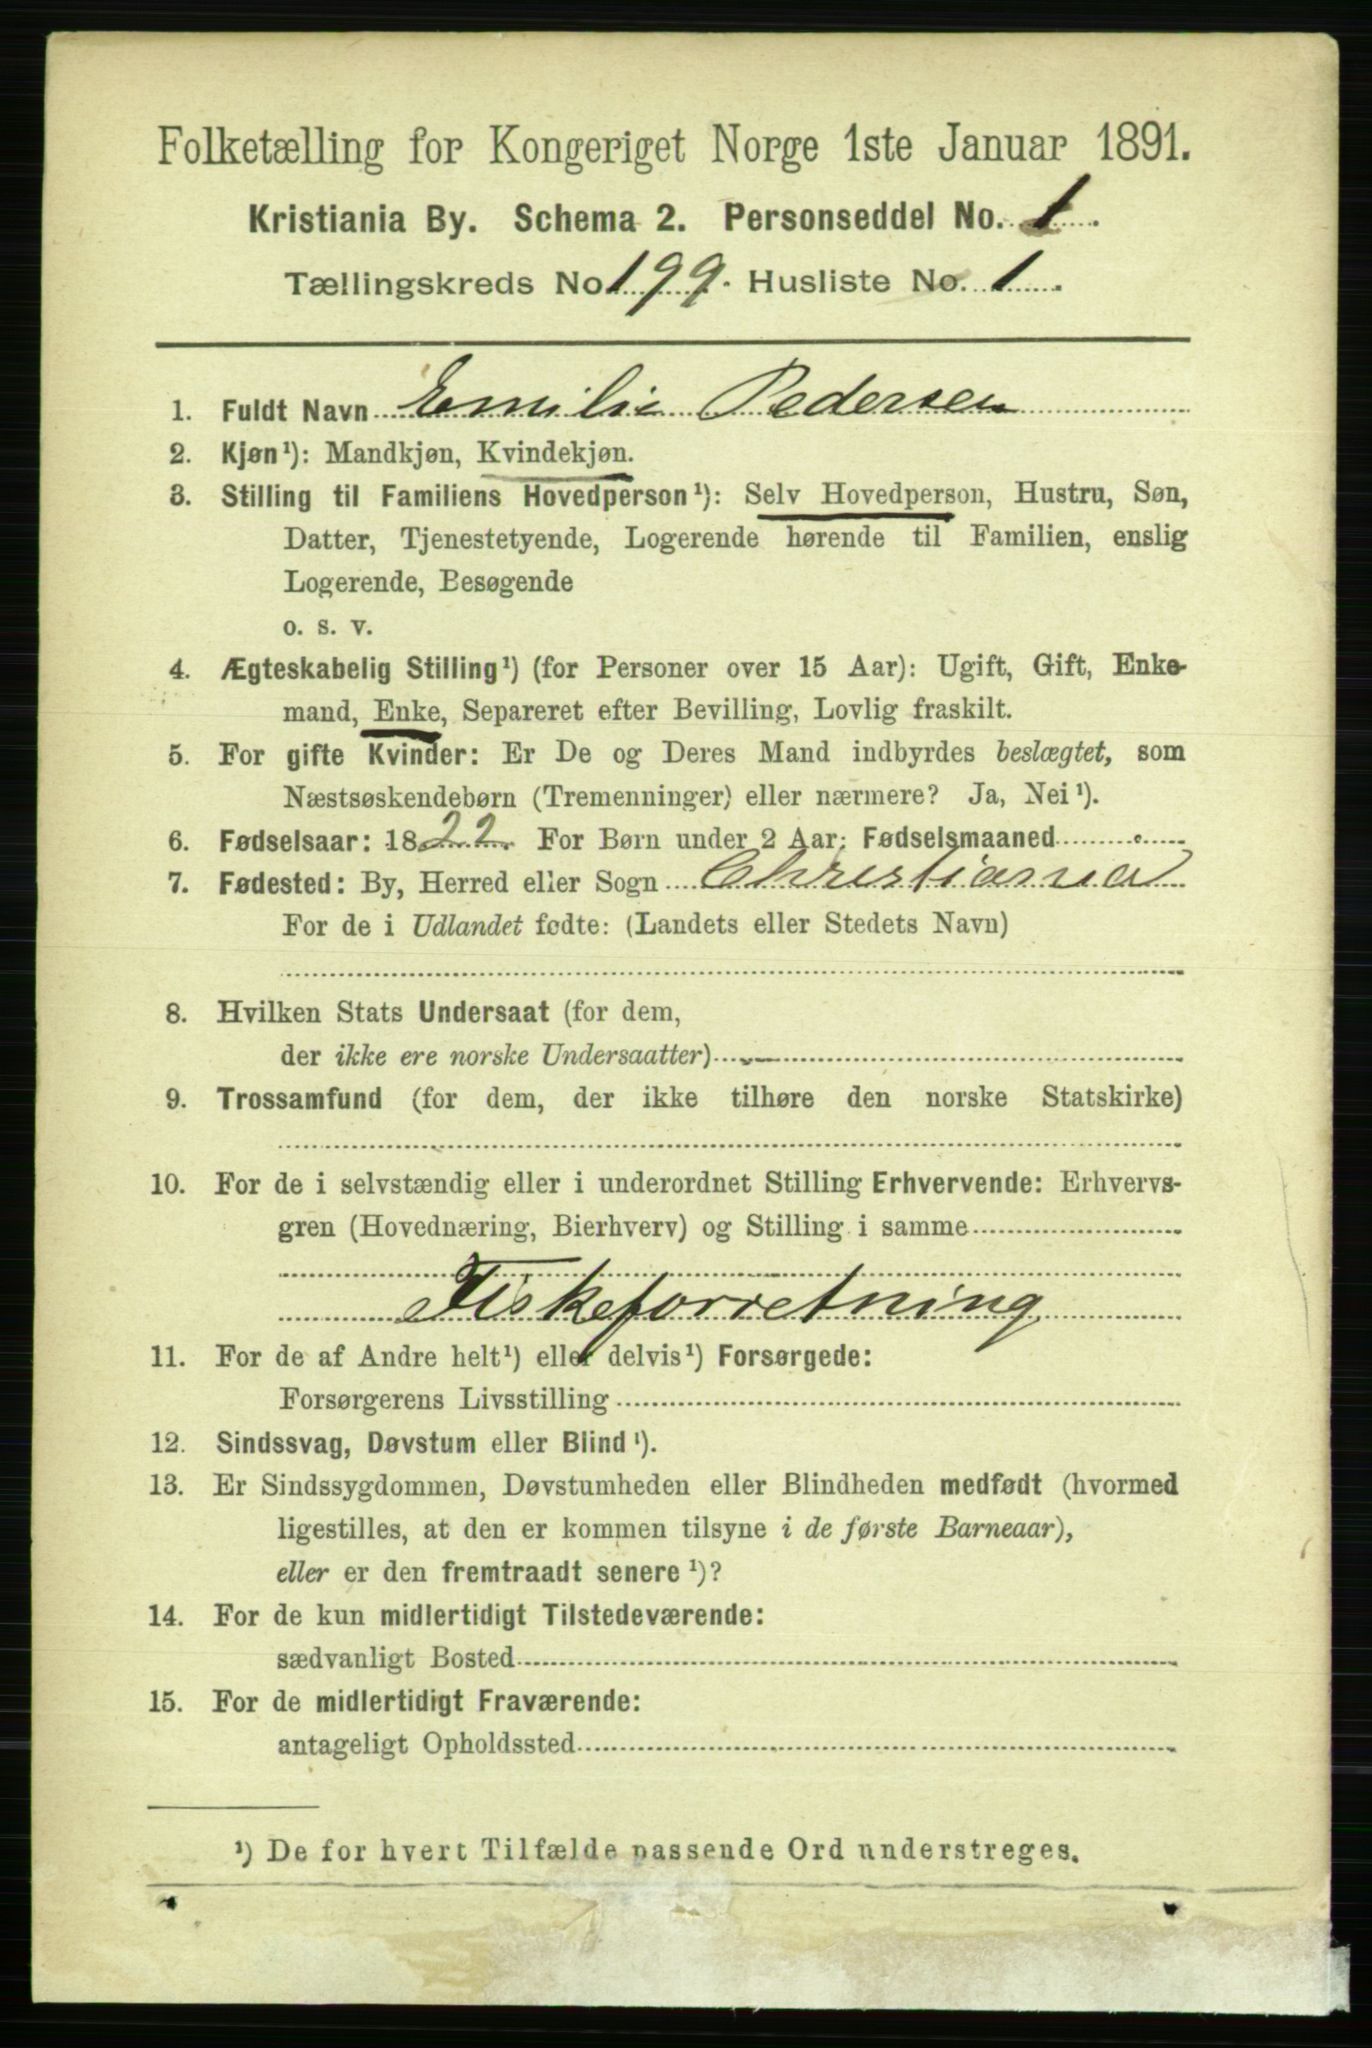 Folketælling for Kongeriget Norge 1ste Januar 1891.
Kristiania By. Schema 2. Personseddel No. 1.
Tællingskreds No 199. Husliste No. 1.
1. Fuldt Navn Emilie Pedersen
2. Kjøn¹): Mandkjøn, Kvindekjøn.
3. Stilling til Familiens Hovedperson¹): Selv Hovedperson, Hustru, Søn,
Datter, Tjenestetyende, Logerende hørende til Familien, enslig
Logerende, Besøgende
o. s. v.
4. Ægteskabelig Stilling¹) (for Personer over 15 Aar): Ugift, Gift, Enke-
mand, Enke, Separeret efter Bevilling, Lovlig fraskilt.
5. For gifte Kvinder: Er De og Deres Mand indbyrdes beslægtet, som
Næstsøskendebørn (Tremenninger) eller nærmere? Ja, Nei¹).
6. Fødselsaar: 1822. For Børn under 2 Aar: Fødselsmaaned
7. Fødested: By, Herred eller Sogn Christiania
For de i Udlandet fødte: (Landets eller Stedets Navn)
8. Hvilken Stats Undersaat (for dem,
der ikke ere norske Undersaatter)
9. Trossamfund (for dem, der ikke tilhøre den norske Statskirke)
10. For de i selvstændig eller i underordnet Stilling Erhvervende: Erhvervs-
gren (Hovednæring, Bierhverv) og Stilling i samme
Fiskeforretning
11. For de af Andre helt¹) eller delvis¹) Forsørgede:
Forsørgerens Livsstilling
12. Sindssvag, Døvstum eller Blind¹).
13. Er Sindssygdommen, Døvstumheden eller Blindheden medfødt (hvormed
ligestilles, at den er kommen tilsyne i de første Barneaar),
eller er den fremtraadt senere¹)?
14. For de kun midlertidigt Tilstedeværende:
sædvanligt Bosted
15. For de midlertidigt Fraværende:
antageligt Opholdssted
¹) De for hvert Tilfælde passende Ord understreges.